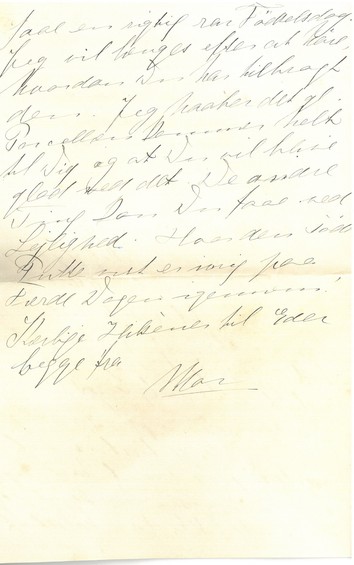 faae en rigtig rar Födselsdag
Jeg vil længes efter at høre,
hvordan Du har tilbragt
den. Jeg haaber det gl.
Porcellæn kommer helt
til Dig og at Du vil blive
glad ved det. De andre
Ting kan Du faae ved
Lejlighed. Hvordan
er mig paa
Færde Dagen igennem!
Kærlige Hilsener til Eder
begge fra
Mor